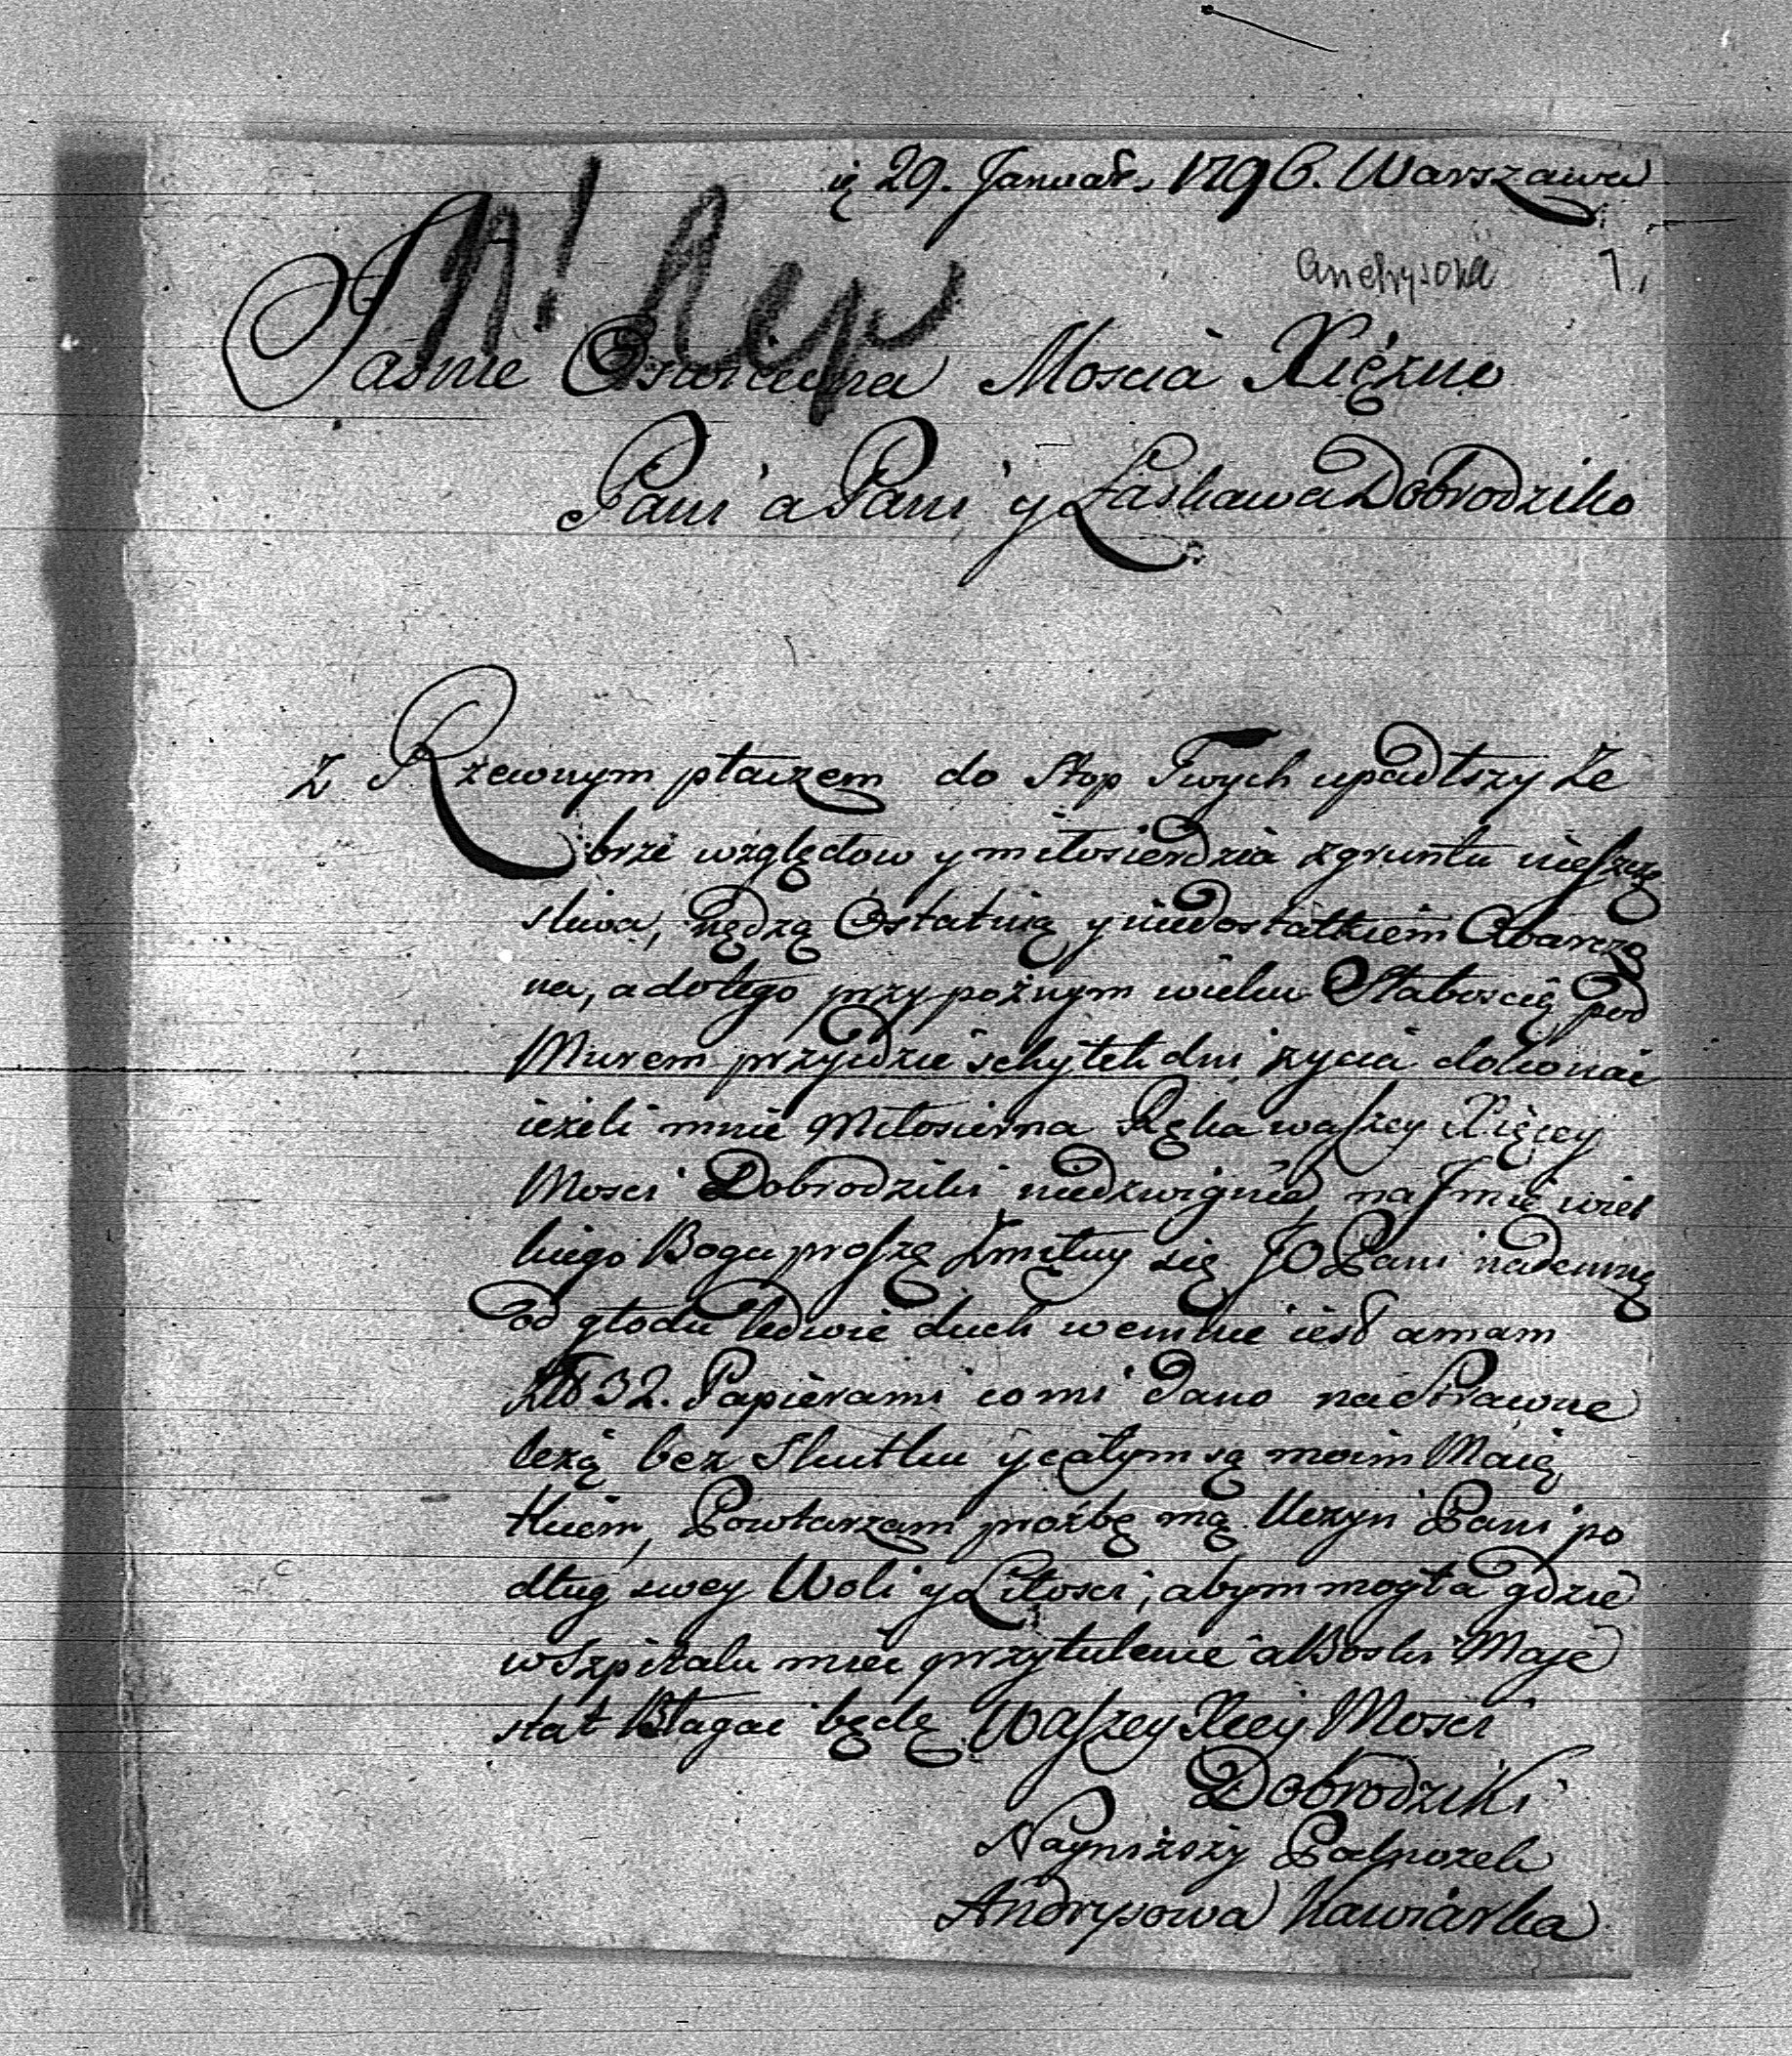 29. Januar. 1796. Warszawa
Andrysowa 1.
N! Rep
Jasnie Oswiecona Moscia Xiężno
Pani a Pani y Łaskawa Dobrodziko
Z Rzewnym płaczem do Stop Twych upadłszy Że
brze względow y miłosierdzia zgruntu nieszczę
sliwa, nędzą Ostatnią y niedostatkiem Obarczo
na, adotego przy poźnym wieku Słaboscią pod
Murem przyidzie schyłek dni życia dokonać
ieżeli mnie Miłosierna Ręka waszey Xięcey
Mosci Dobrodziki niedzwignie, na Jmie wiel
kiego Boga proszę Zmiłuy się JO Pani nademną
od głodu ledwie duch wemnie iest amam
Lat 32. Papierami co mi dano naStrawne
leżą bez Skutku y całym są moim Maią
tkiem, Powtarzam proźbę mą Uczyń Pani po
dług swey Woli y Litosci, abym mogła gdzie
w Szpitalu mieć przytulenie a Boski Maje
stat Błagac będę Waszey Xcey Mosci
Dobrodziki
Nayniższy Podnożek
Andrysowa Kawiarka